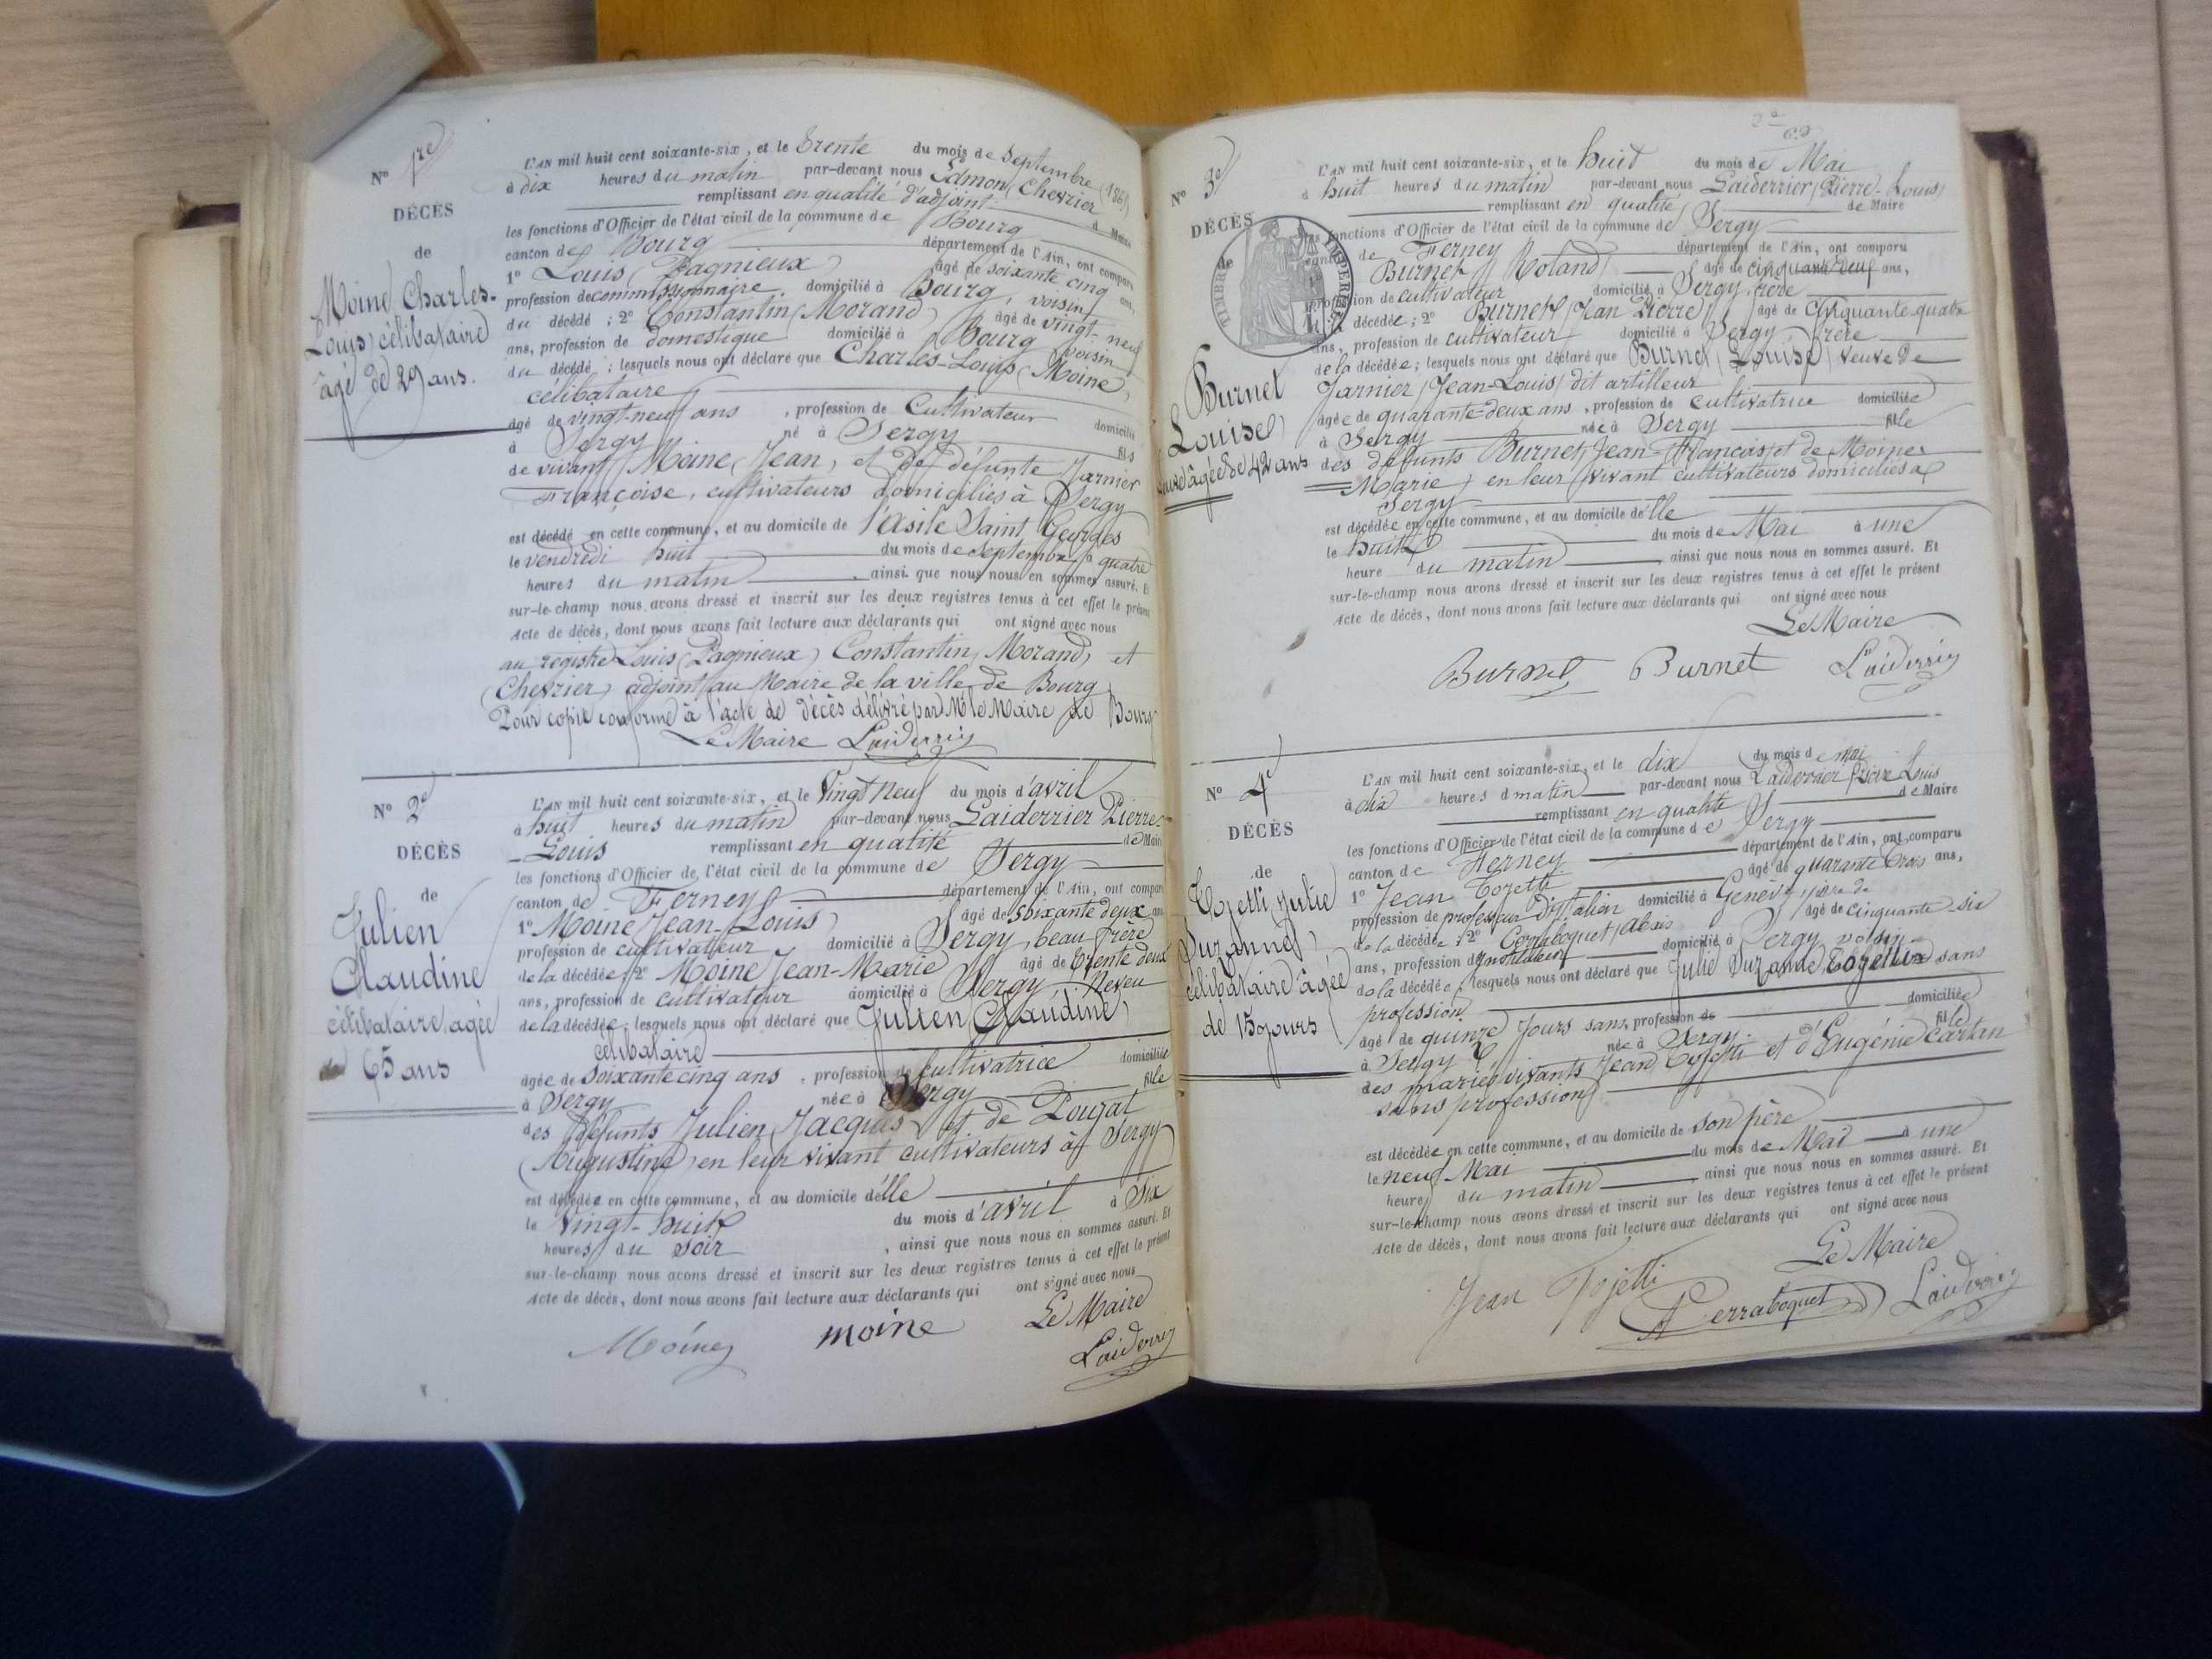 Nº 1re
DÉCÈS
de
Moine Charles-
Louis, célibataire
âgé de 29 ans.
L'AN mil huit cent soixante-six, et le trente du mois de Septembre (186
à dix heures du matin par-devant nous Edmon Chevrier
remplissant en qualité d'adjoint d Maire
les fonctions d'Officier de l'état civil de la commune de Bourg
canton de Bourg département de l'Ain, ont comparu
1º Louis Pagnieux âgé de soixante cinq ans,
profession de commissionnaire domicilié à Bourg, voisin
du décédé ; 2º Constantin Morand âgé de vingt-neuf
ans, profession de domestique domicilié à Bourg voisin
du décédé ; lesquels nous ont déclaré que Charles-Louis Moine,
célibataire
âgé de vingt-neuf ans , profession de Cultivateur domicilié
à Sergy né à Sergy fils
de vivant Moine Jean, et de défunte Jarnier
Françoise, cultivateurs domiciliés à Sergy
est décédé en cette commune, et au domicile de l'Asile Saint Georges
le vendredi huit du mois de Septembre à quatre
heures du matin , ainsi que nous nous en sommes assuré. Et
sur-le-champ nous avons dressé et inscrit sur les deux registres tenus à cet effet le présent
Acte de décès, dont nous avons fait lecture aux déclarants qui ont signé avec nous
au registre Louis Pagnieux, Constantin Morand, et
Chevrier, adjoint au Maire de la ville de Bourg
Pour copie conforme à l'acte de décès délivré par Mr le Maire de Bourg
Le Maire Laiderrier
Nº 2e
DÉCÈS
de
Julien
Claudine
célibataire, agée
de 65 ans
L'AN mil huit cent soixante-six, et le Vingt neuf du mois d'avril
à huit heures du matin par-devant nous Laiderrier Pierre
-Louis remplissant en qualité de Maire
les fonctions d'Officier de l'état civil de la commune de Sergy
canton de Ferney département de l'Ain, ont comparu
1º Moine Jean-Louis âgé de soixante deux ans
profession de cultivateur domicilié à Sergy, beau frère
de la décédée ; 2º Moine Jean-Marie âgé de trente deux
ans, profession de cultivateur domicilié à Sergy Neveu
de la décédée ; lesquels nous ont déclaré que Julien Claudine,
célibataire
âgée de soixante cinq ans , profession de cultivatrice domiciliée
à Sergy née à Sergy fille
des défunts Julien Jacques et de Pouzat
Augustine, en leur vivant cultivateurs à Sergy
est décédée en cette commune, et au domicile d'elle
le Vingt-huit du mois d'avril à Six
heures du soir , ainsi que nous nous en sommes assuré. Et
sur-le-champ nous avons dressé et inscrit sur les deux registres tenus à cet effet le présent
Acte de décès, dont nous avons fait lecture aux déclarants qui ont signé avec nous
Le Maire
Moine moine Laiderrier
Nº 3e
DÉCÈS
de
TIMBRE IMPERIAL
Burnet
Louise
veuve âgée de 42 ans
L'AN mil huit cent soixante-six, et le huit du mois de Mai
à huit heures du matin par-devant nous Laiderrier, Pierre-Louis
remplissant en qualité de Maire
les fonctions d'Officier de l'état civil de la commune de Sergy
canton de Ferney département de l'Ain, ont comparu
Burnet Roland âgé de cinquante neuf ans,
profession de cultivateur domicilié à Sergy, frère
de la décédée ; 2º Burnet Jean Pierre âgé de cinquante-quatre
ans, profession de cultivateur domicilié à Sergy frère
de la décédée ; lesquels nous ont déclaré que Burnet Louise, veuve de
Jarnier Jean-Louis dit artilleur
âgée de quarante-deux ans , profession de cultivatrice domiciliée
à Sergy née à Sergy fille
des défunts Burnet, Jean-François et de Moine
Marie, en leur vivant cultivateurs domiciliés à
Sergy
est décédée en cette commune, et au domicile d'elle
le huit du mois de Mai à une
heure du matin , ainsi que nous nous en sommes assuré. Et
sur-le-champ nous avons dressé et inscrit sur les deux registres tenus à cet effet le présent
Acte de décès, dont nous avons fait lecture aux déclarants qui ont signé avec nous
Le Maire
Burnet Burnet Laiderrier
Nº 4e
DÉCÈS
de
Tojetti Julie
Suzanne
célibataire âgée
de 15 jours
L'AN mil huit cent soixante-six, et le dix du mois de mai
à dix heures d matin par-devant nous Laiderrier Pierre Louis
remplissant en qualité de Maire
les fonctions d'Officier de l'état civil de la commune de Sergy
canton de Ferney département de l'Ain, ont comparu
1º Jean Tojetti âgé de quarante trois ans,
profession de professeur d'Italien domicilié à Genève, père de
de la décédée ; 2º Perraboquet Alexis âgé de cinquante-six
ans, profession d'Instituteur domicilié à Sergy voisin
de la décédée ; lesquels nous ont déclaré que Julie Suzanne Tojetti sans
profession
âgé de quinze jours sans profession de domiciliée
à Sergy née à Sergy fille
des mariés vivants Jean Tojetti et d'Eugénie Cartan
sans profession
est décédée en cette commune, et au domicile de son père
le neuf Mai du mois de Mai à une
heure du matin , ainsi que nous nous en sommes assuré. Et
sur-le-champ nous avons dressé et inscrit sur les deux registres tenus à cet effet le présent
Acte de décès, dont nous avons fait lecture aux déclarants qui ont signé avec nous
Le Maire
Jean Tojetti A Perraboquet Laiderrier